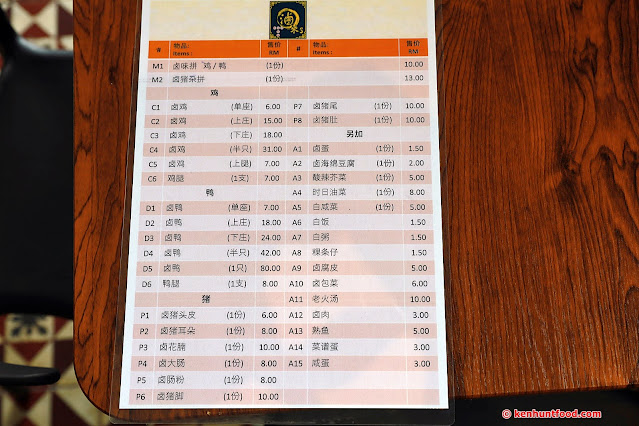 卤味
# 物品: Items: 售价 RM # 物品: Items: 售价 RM
M1 卤味拼 鸡/鸭 (1份) 10.00
M2 卤猪杂拼 (1份) 13.00
鸡
C1 卤鸡 (单座) 6.00 P7 卤猪尾 (1份) 10.00
C2 卤鸡 (上庄) 15.00 P8 卤猪肚 (1份) 10.00
C3 卤鸡 (下庄) 18.00 另加
C4 卤鸡 (半只) 31.00 A1 卤蛋 (1份) 1.50
C5 卤鸡 (上腿) 7.00 A2 卤海绵豆腐 (1份) 2.00
C6 鸡腿 (1支) 7.00 A3 酸辣芥菜 (1份) 5.00
鸭 A4 时日油菜 (1份) 8.00
D1 卤鸭 (单座) 7.00 A5 白咸菜 (1份) 5.00
D2 卤鸭 (上庄) 18.00 A6 白饭 1.50
D3 卤鸭 (下庄) 24.00 A7 白粥 1.50
D4 卤鸭 (半只) 42.00 A8 粿条仔 1.50
D5 卤鸭 (1只) 80.00 A9 卤腐皮 5.00
D6 鸭腿 (1支) 8.00 A10 卤包菜 6.00
猪 A11 老火汤 10.00
P1 卤猪头皮 (1份) 6.00 A12 卤肉 3.00
P2 卤猪耳朵 (1份) 8.00 A13 熟鱼 5.00
P3 卤花腩 (1份) 10.00 A14 菜谱蛋 3.00
P4 卤大肠 (1份) 8.00 A15 咸蛋 3.00
P5 卤肠粉 (1份) 8.00
P6 卤猪脚 (1份) 10.00
© kenhuntfood.com